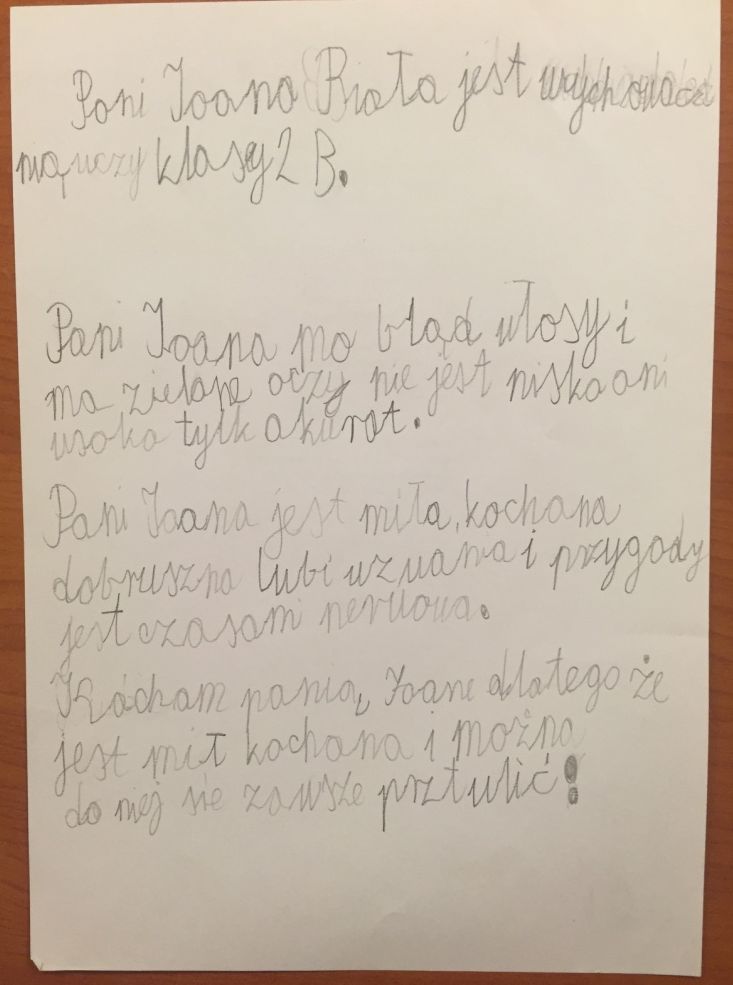 Pani Joana Biała jest wychowacz
nią uczy klasy 2 B.
Pani Joana ma bląd włosy i
ma zielone oczy nie jest niska ani
wsoka tylk akurat.
Pani Joana jest miła, kochana
dobruszna lubi uzwana i przygody
jest czasam nerwowa.
Kocham panią Joane dlatego że
jest mił kochana i możno
do niej sie zawsze prztulić!